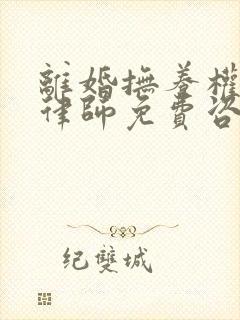 離婚撫養權
律師免費咨
纪雙城